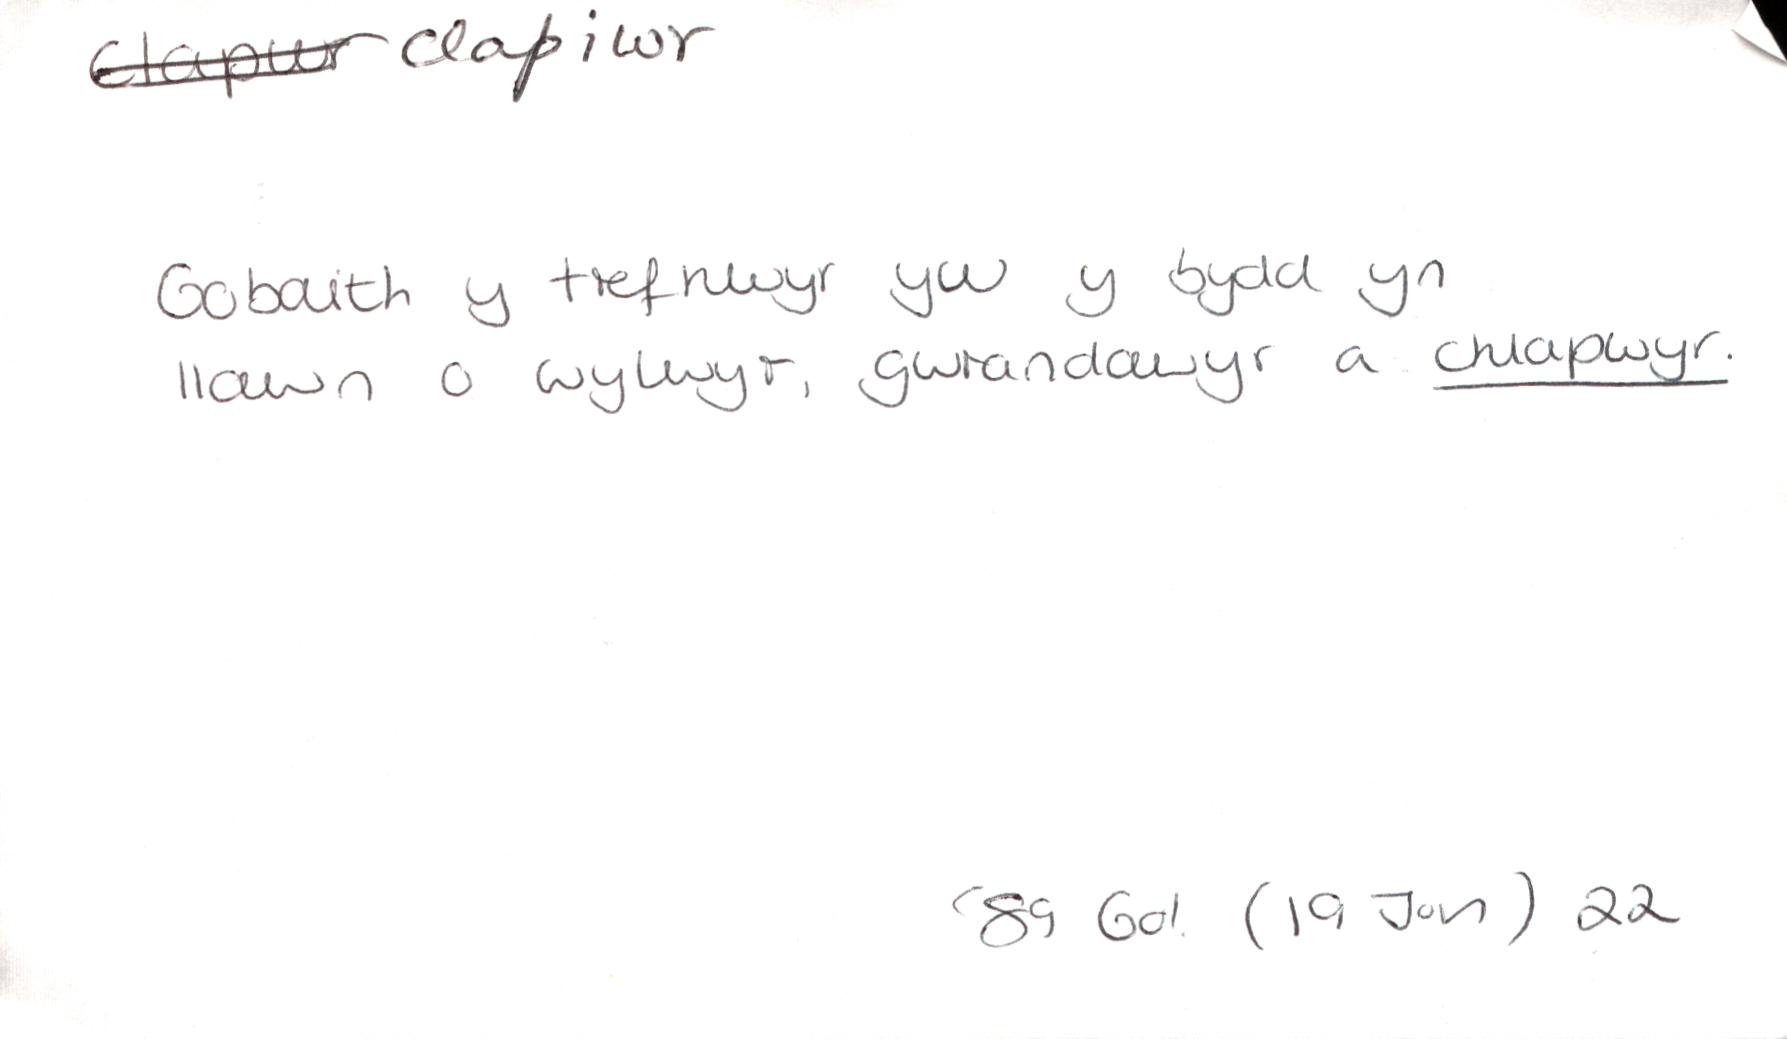 clapwr clapiwr
Gobaith y trefnwyr yw y bydd yn
llawn o wylwyr, gwrandawyr a chlapwyr.
'89 Gol. (19 Ion) 22